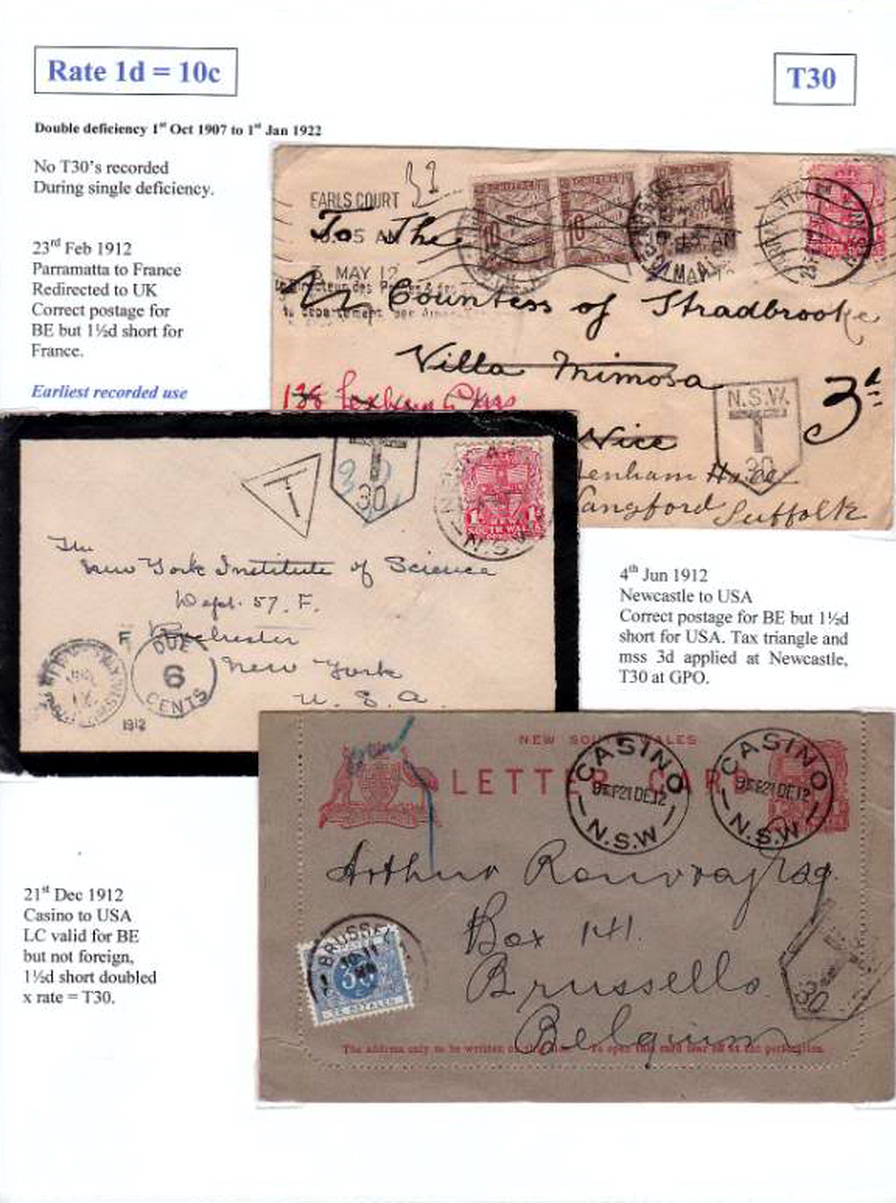 Rate 1d = 10c
T30
Double deficiency 1st Oct 1907 to 1st Jan 1922
No T30's recorded
During single deficiency.
23rd Feb 1912
Parramatta to France
Redirected to UK
Correct postage for
BE but 1½d short for
France.
Earliest recorded use
EARLS COURT
To The
5 MAY 12
Countess of Stradbrooke
Villa Mimosa
Nice
N.S.W.
T
30
3d
138
enham
angford Suffolk
T
T
30
The
New York Institute of Science
Dept. 57. F.
Rochester
New York
U. S. A.
F
DUE
6
CENTS
1912
N.S.W
4th Jun 1912
Newcastle to USA
Correct postage for BE but 1½d
short for USA. Tax triangle and
mss 3d applied at Newcastle,
T30 at GPO.
NEW SOUTH WALES
LETTER CARD
CASINO
21DE12
N.S.W
CASINO
21DE12
N.S.W
Arthur
Box 141.
Brussells
Belgium
BRUSSEL
TE BETALEN
30
The address only to be written on this side. To open this card tear off at the perforation.
21st Dec 1912
Casino to USA
LC valid for BE
but not foreign,
1½d short doubled
x rate = T30.